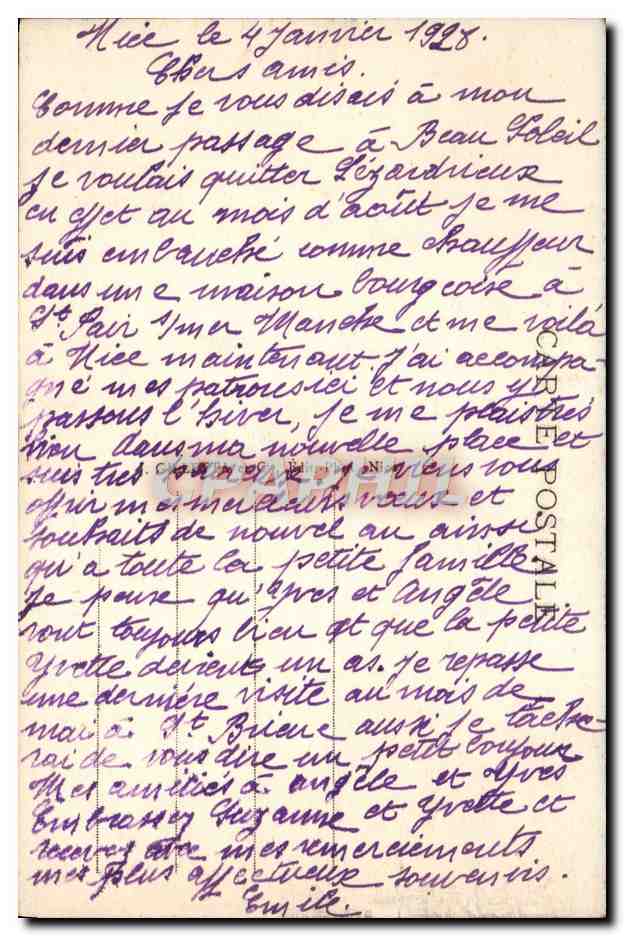 Nice le 4 Janvier 1928.
Chers amis.
Comme je vous disais à mon
dernier passage à Beau Soleil
je voulais quitter Lézardrieux
en effet au mois d'août je me
suis embauché comme chauffeur
dans une maison bourgeoise à
St. Pair s/mer Manche et me voilà
à Nice maintenant. J'ai accompa-
gné mes patrons ici et nous y
passons l'hiver, je me plais très
bien dans ma nouvelle place et
suis très viens vous
offrir mes meilleurs voeux et
souhaits de nouvel an ainsi
qu'à toute la petite famille.
Je pense qu'Yves et Angèle
vont toujours bien et que la petite
Yvette devient un as. Je repasse
une dernière visite au mois de
mai à St. Brieuc aussi je tâche-
rai de vous dire un petit bonjour
Mes amitiés à Angèle et Yves
Embrassez Suzanne et Yvette et
recevez avec mes remerciements
mes plus affectueux souvenirs.
Emile.
CARTE POSTALE
CPAPHIL
Nice